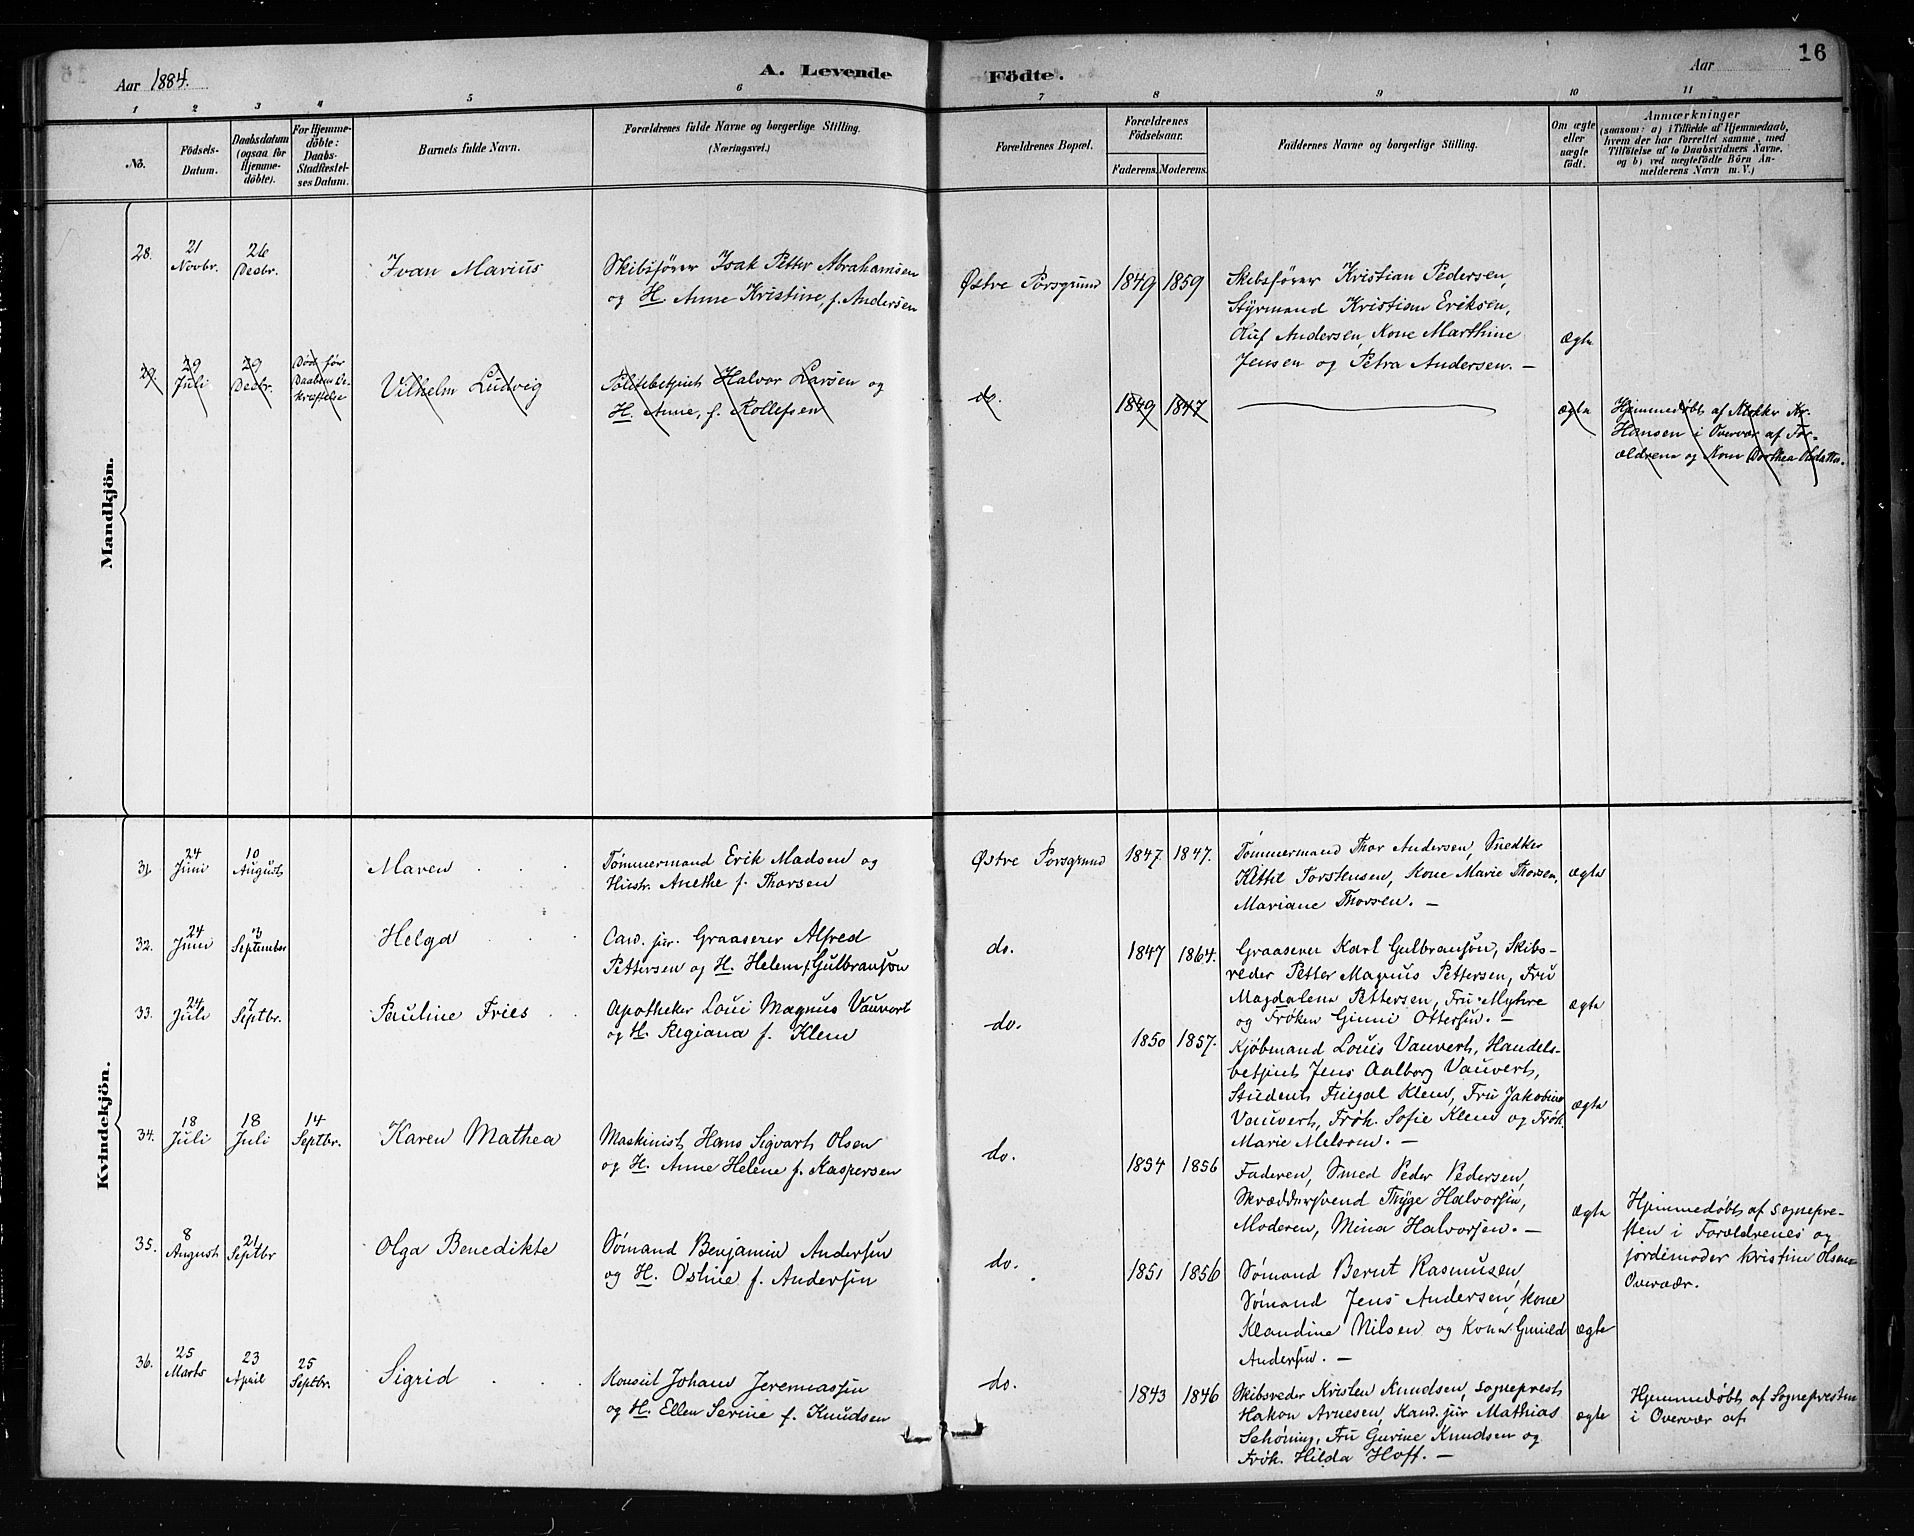 Aar 1884.
A. Levende
Födte.
Aar
16
1 2 3 4 5 6 7 8 9 10 11
No.
Födsels-
Datum.
Daabsdatum
(ogsaa for
Hjemme-
döbte).
For Hjemme-
döbte:
Daabs-
Stadfæstel-
ses Datum.
Barnets fulde Navn.
Forældrenes fulde Navne og borgerlige Stilling.
(Næringsvei.)
Forældrenes Bopæl.
Forældrenes
Födselsaar.
Faderens. Moderens.
Faddernes Navne og borgerlige Stilling.
Om ægte
eller
uægte
födt.
Anmærkninger
(saasom: a) i Tilfælde af Hjemmedaab,
hvem der har forrettet samme, med
Tilföielse af to Daabsvidners Navne,
og b) ved uegtefödte Börn An-
melderens Navn m. V.)
Mandkjön.
28.
21
Novbr.
26
Decbr.
Ivan Marius
Skibsfører Isak Petter Abrahamsen
og H. Anne Kristine, f. Andersen
Østre Porsgrund
1849 1859
Skibsfører Kristian Pedersen,
Styrmand Kristian Eriksen,
Auf Andersen, Kone Marthine
Jensen og Petra Andersen. —
ægte
29.
29
Juli
29
Decbr.
Død før
Daabens be-
kræftelse
Vilhelm Ludvig
Politibetjent Halvor Larsen og
H. Anne, f. Rollefsen
do.
1849 1847
ægte
Hjemmedøbt af Kr.
Hansen i Overvær af For-
ældrene og Kone Dorthea Olsdatter.
Kvindekjön.
31.
24
Juni
10
August
Maren
Tømmermand Erik Madsen og
Hustr. Anethe f. Thorsen
Østre Porsgrund
1847. 1847.
Tømmermand Thor Andersen, Snedker
Kittil Torstensen, Kone Marie Thorsen,
Mariane Thorsen. —
ægte
32.
24
Juni
3
September
Helga
Cand. jur. Graaserer Alfred
Pettersen og H. Helene f. Gulbranson
do.
1847 1864.
Graaserer Karl Gulbranson, Skibs-
reder Petter Magnus Pettersen, Fru
Magdalene Pettersen, Fru Myhre
og Frøken Ginni Ottersen. —
ægte
33.
24
Juli
7
Septbr.
Pauline Fries
Apotheker Loui Magnus Vauvert
og H. Regiana f. Klem
do.
1850 1857.
Kjøbmand Louis Vauvert, Handels-
betjent Jens Aalborg Vauvert,
Student Fingal Klem, Fru Jakobine
Vauvert, Frøk. Sofie Klem og Frøk.
Marie Melsom. —
ægte
34.
18
Juli
18
Juli
14
Septbr.
Karen Mathea
Maskinist Hans Sigvart Olsen
og H. Anne Helene f. Kaspersen
do.
1854 1856
Faderen, Smed Peder Pedersen,
Skræddersvend Thyge Halvorsen,
Moderen, Mina Halvorsen. —
ægte
Hjemmedøbt af sognepre-
sten i Forældrenes og
jordemoder Kristine Olsens
Overvær.
35.
8
August
21
Septbr
Olga Benedikte
Sømand Benjamin Andersen
og H. Ostine f. Andersen
do.
1851 1856
Sømand Bernt Rasmusen,
Sømand Jens Andersen, kone
Klandine Nilsen og Kone Gunild
Andersen. —
ægte
36.
25
Marts
23
April
25
Septbr.
Sigrid
Konsul Johan Jeremiassen
og H. Ellen Serine f. Knudsen
do.
1843 1846
Skibsreder Kristen Knudsen, sogneprest
Hakon Arnesen, Kand. jur Mathias
Schøning, Fru Gurine Knudsen og
Frøk. Hilda Hoff. —
ægte
Hjemmedøbt af Sognepresten
i Overvær af